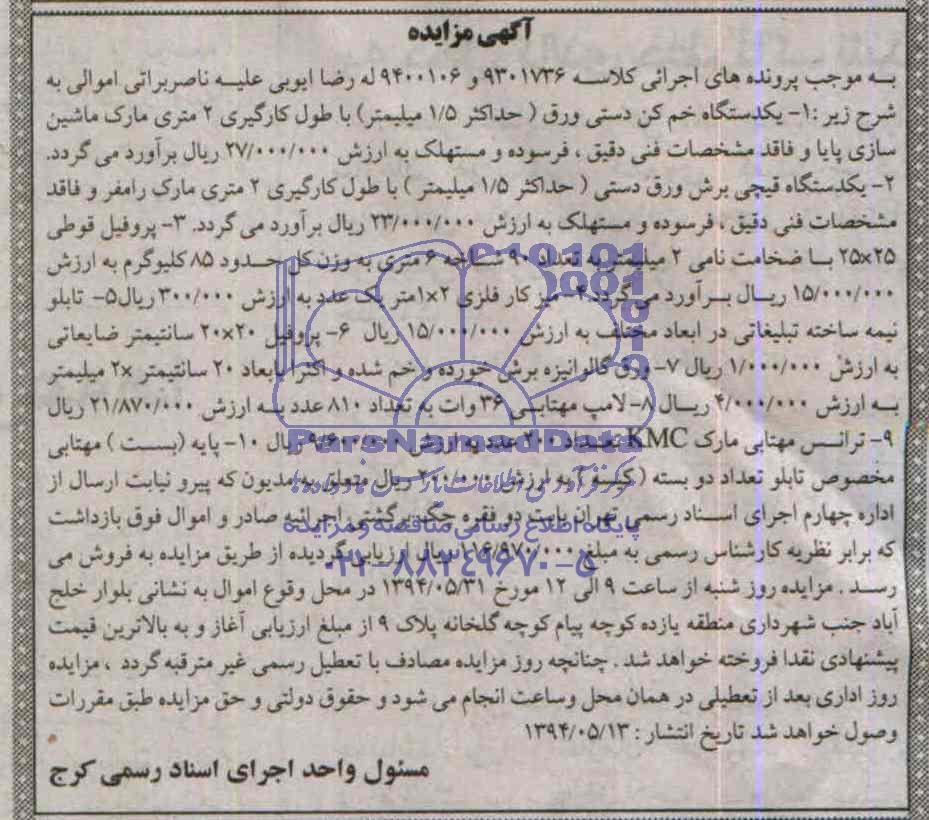 آگهی مزایده
به موجب پرونده های اجرائی کلاسه ۹۳۰۱۷۳۶ و ۹۴۰۰۱۰۶ له رضا ایوبی علیه ناصربراتی اموالی به
شرح زیر :۱- یکدستگاه خم کن دستی ورق ( حداکثر ۱/۵ میلیمتر) با طول کارگیری ۲ متری مارک ماشین
سازی پایا و فاقد مشخصات فنی دقیق ، فرسوده و مستهلک به ارزش ۲۷/۰۰۰/۰۰۰ ریال برآورد می گردد.
۲- یکدستگاه قیچی برش ورق دستی ( حداکثر ۱/۵ میلیمتر ) با طول کارگیری ۲ متری مارک رامفر و فاقد
مشخصات فنی دقیق ، فرسوده و مستهلک به ارزش ۲۳/۰۰۰/۰۰۰ ریال برآورد می گردد. ۳- پروفیل قوطی
۲۵×۲۵ با ضخامت نامی ۲ میلیمتر به تعداد ۹۰ شاخه ۶ متری به وزن کل حدود ۸۵ کلیوگرم به ارزش
۱۵/۰۰۰/۰۰۰ ریال برآورد می گردد ۴- میز کار فلزی ۲×۱متر یک عدد به ارزش ۳۰۰/۰۰۰ ریال۵- تابلو
نیمه ساخته تبلیغاتی در ابعاد مختلف به ارزش ۱۵/۰۰۰/۰۰۰ ریال ۶- پروفیل ۲۰×۲۰ سانتیمتر ضایعاتی
به ارزش ۱/۰۰۰/۰۰۰ ریال ۷- ورق گالوانیزه برش خورده و خم شده و اکثرا بابعاد ۲۰ سانتیمتر ×۲ میلیمتر
به ارزش ۴/۰۰۰/۰۰۰ ریال ۸- لامپ مهتابی ۳۶ وات به تعداد ۸۱۰ عدد به ارزش ۲۱/۸۷۰/۰۰۰ ریال
۹- ترانس مهتابی مارک KMC تعداد ۲۰۰ عدد به ارزش ۹/۶۰۰/۰۰۰ ریال ۱۰- پایه (بست ) مهتابی
مخصوص تابلو تعداد دو بسته (کیسه ) به ارزش ۲۰۰/۰۰۰ ریال متعلق به مدیون که پیرو نیابت ارسال از
اداره چهارم اجرای اسناد رسمی تهران بابت دو فقره چک برگشتی اجرائیه صادر و اموال فوق بازداشت
که برابر نظریه کارشناس رسمی به مبلغ ۱۱۶/۹۷۰/۰۰۰ ریال ارزیابی گردیده از طریق مزایده به فروش می
رسد . مزایده روز شنبه از ساعت ۹ الی ۱۲ مورخ ۱۳۹۴/۰۵/۳۱ در محل وقوع اموال به نشانی بلوار خلج
آباد جنب شهرداری منطقه یازده کوچه پیام کوچه گلخانه پلاک ۹ از مبلغ ارزیابی آغاز و به بالاترین قیمت
پیشنهادی نقدا فروخته خواهد شد . چنانچه روز مزایده مصادف با تعطیل رسمی غیر مترقبه گردد ، مزایده
روز اداری بعد از تعطیلی در همان محل وساعت انجام می شود و حقوق دولتی و حق مزایده طبق مقررات
وصول خواهد شد تاریخ انتشار : ۱۳۹۴/۰۵/۱۳
مسئول واحد اجرای اسناد رسمی کرج
ParsNamadData
مرکز فرآوری اطلاعات پارس نماد داده ها
پایگاه اطلاع رسانی مناقصه و مزایده
۰۲۱-۸۸۳۴۹۶۷۰-۵